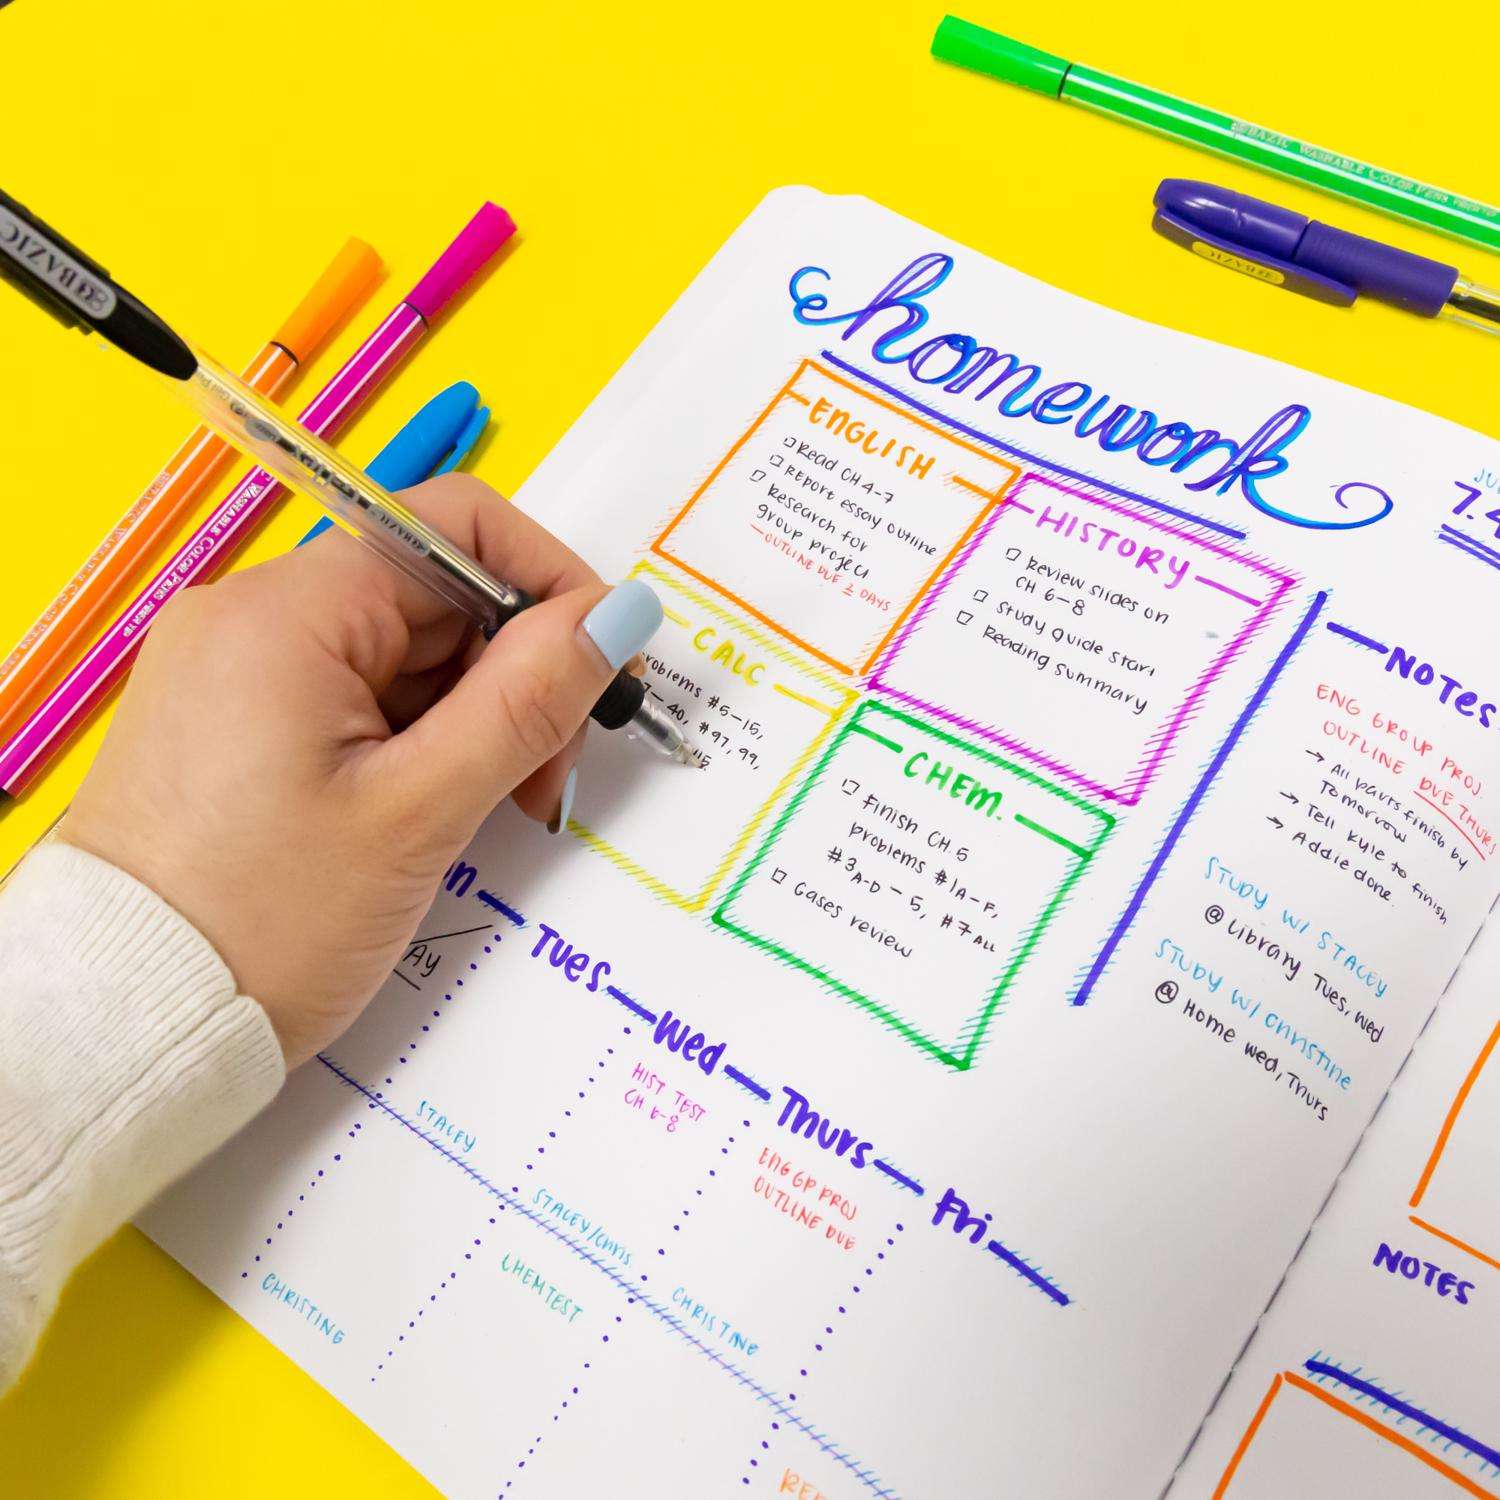 BAZIC
BAZIC WASHABLE COLOR PENS
BAZIC
WASHABLE COLOR PENS FIBER TIP
BAZIC
homework
7.4
ENGLISH
Read CH 4-7
REPORT essay outline
Research for
group project
-OUTLINE DUE 2 DAYS
HISTORY
Review slides on
CH 6-8
Study guide start
Reading summary
CALC
problems #5-15,
#97, 99,
115
CHEM.
Finish CH. 5
problems #1A-F,
#3A-D - 5, #7 ALL
Gases review
NOTES
ENG GROUP PROJ.
OUTLINE DUE THURS
→ All parts finish by
Tomorrow
→ Tell Kyle to finish
→ Addie done.
STUDY W/ STACEY
@ Library Tues, Wed
STUDY W/ Christine
@ Home Wed, Thurs
Tues
Wed
Thurs
Fri
HIST TEST
CH 6-8
ENG GP PROJ
OUTLINE DUE
STACEY
STACEY/Chris.
CHRISTINE
CHRISTINE
CHEM TEST
NOTES